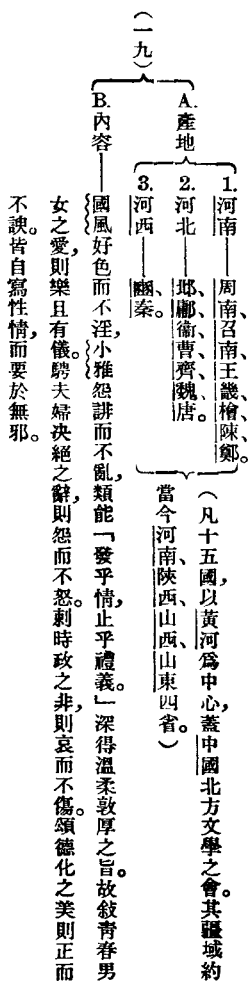 (一九)
A.產地
1.河南——周南、召南、王畿、檜、陳、鄭。
2.河北——邶、鄘、衞、曹、齊、魏、唐。
3.河西——豳、秦。
(凡十五國,以黃河爲中心,蓋中國北方文學之會。其疆域約
當今河南、陝西、山西、山東四省。)
B.內容——國風好色而不淫,小雅怨誹而不亂,類能「發乎情,止乎禮義。」深得溫柔敦厚之旨。故敍靑春男
女之愛,則樂且有儀。勝夫婦決絕之辭,則怨而不怒。刺時政之非,則哀而不傷。頌德化之美則正而
不諛。皆自寫性情,而要於無邪。